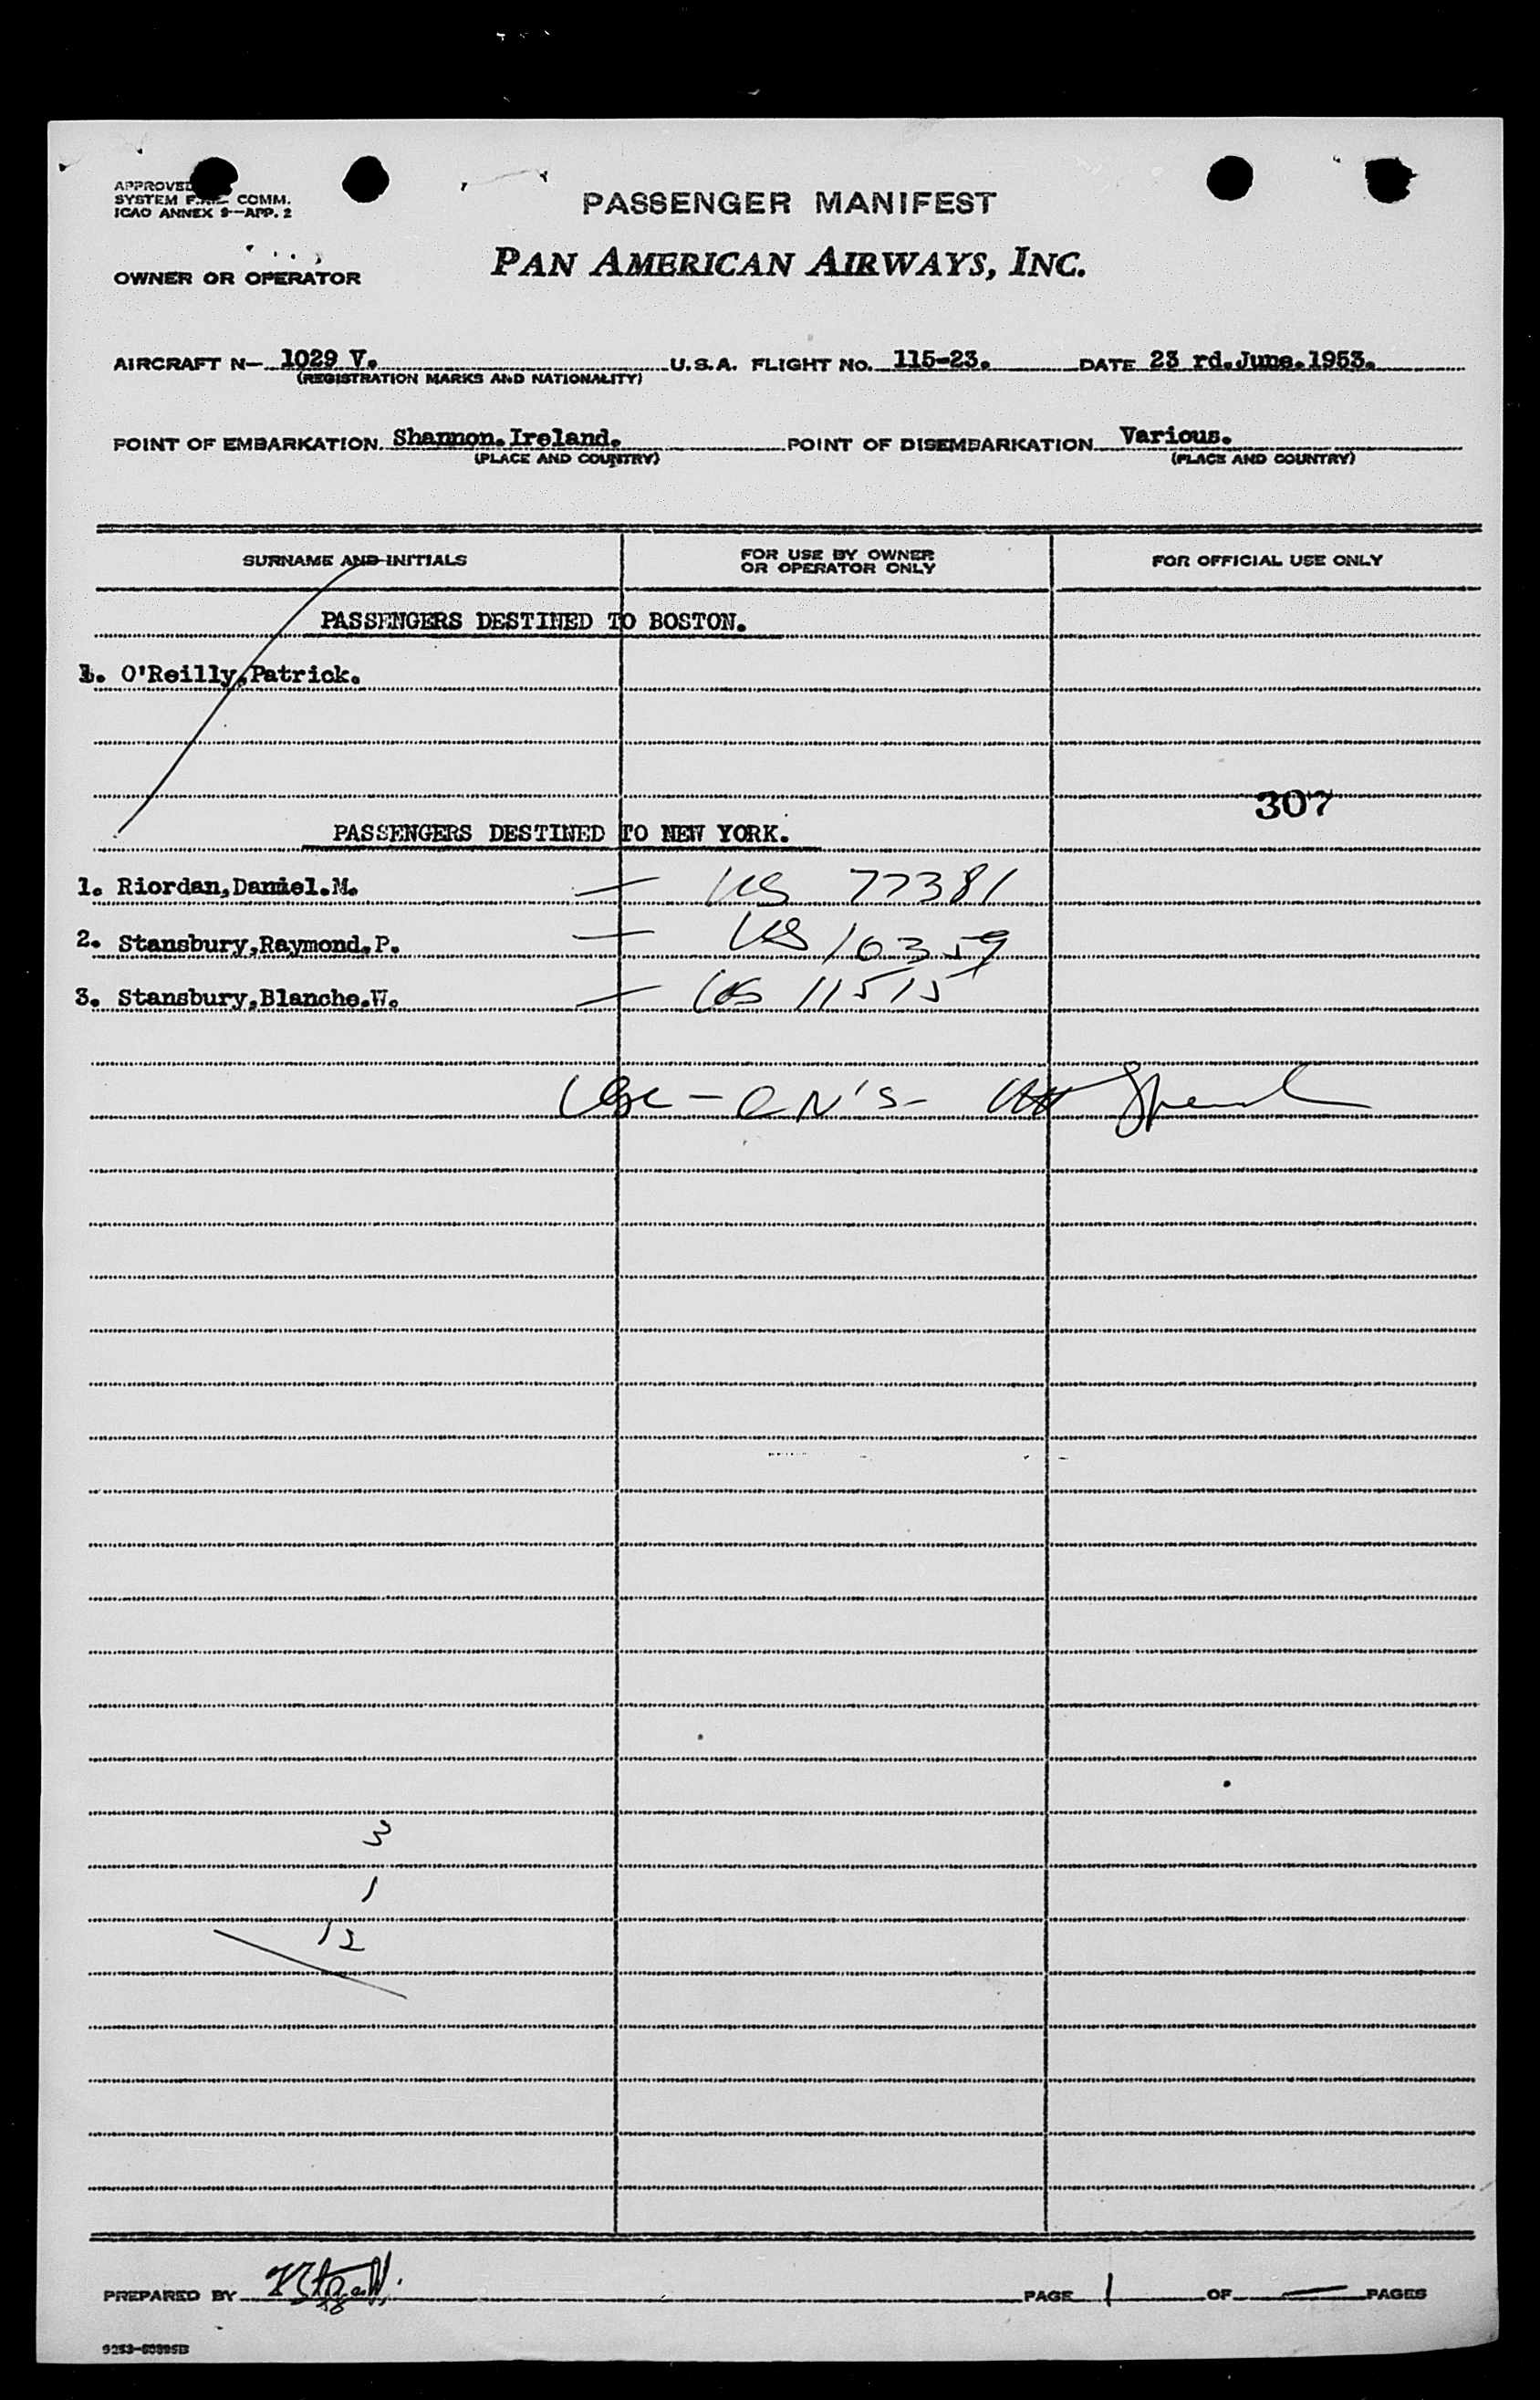 APPROVED
SYSTEM F.A.L. COMM.
ICAO ANNEX 9—APP. 2
PASSENGER MANIFEST
OWNER OR OPERATOR PAN AMERICAN AIRWAYS, INC.
AIRCRAFT N— 1029 V. U.S.A. FLIGHT NO. 115-23. DATE 23 rd.June.1953.
(REGISTRATION MARKS AND NATIONALITY)
POINT OF EMBARKATION Shannon.Ireland. POINT OF DISEMBARKATION Various.
(PLACE AND COUNTRY) (PLACE AND COUNTRY)
SURNAME AND INITIALS FOR USE BY OWNER OR OPERATOR ONLY FOR OFFICIAL USE ONLY
PASSENGERS DESTINED TO BOSTON.
1. O'Reilly,Patrick.
307
PASSENGERS DESTINED TO NEW YORK.
1. Riordan,Daniel.M. — US 77381
2. Stansbury,Raymond.P. — US 10359
3. Stansbury,Blanche.W. — US 11515
3
1
12
PREPARED BY PAGE 1 OF — PAGES